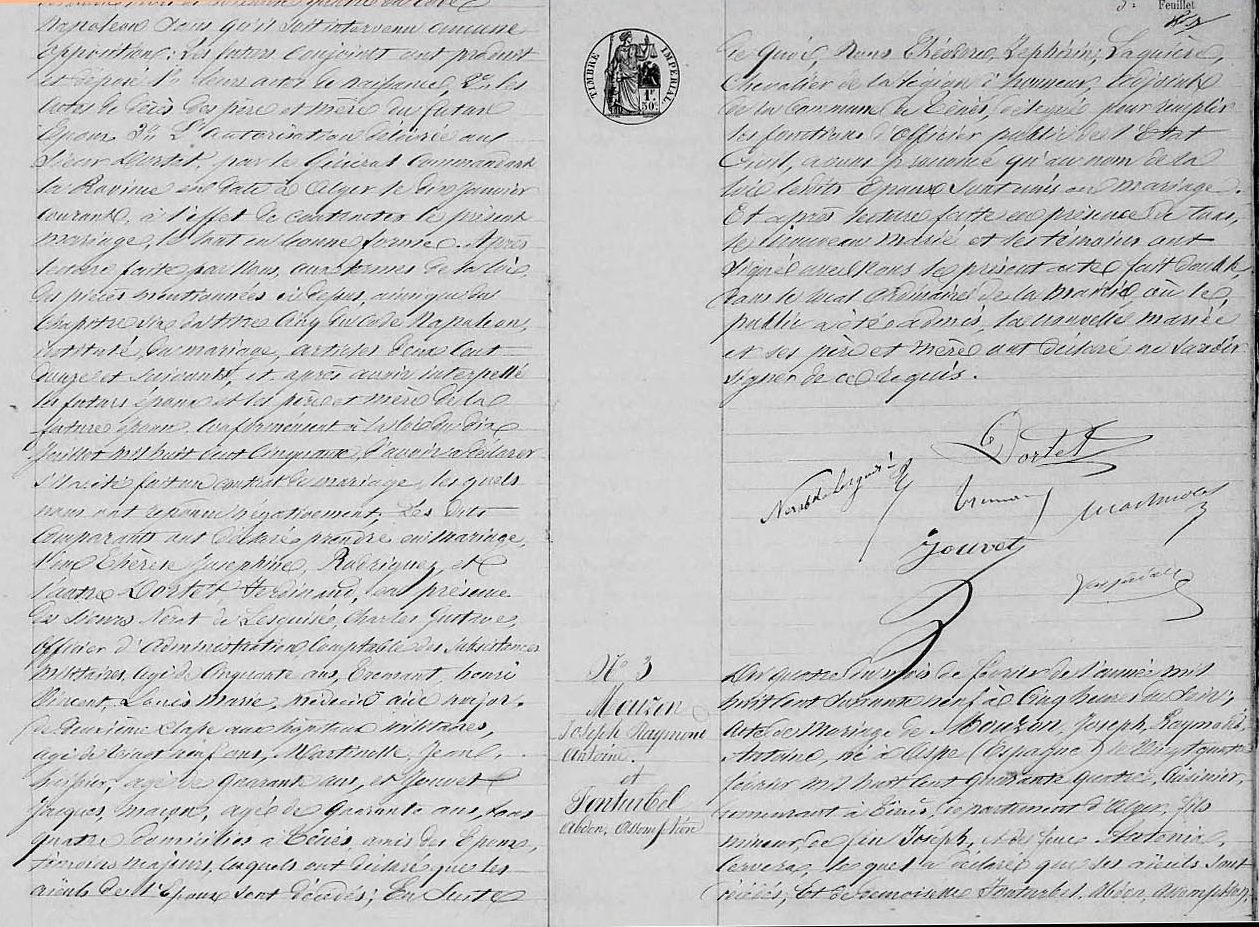 Napoléon sans qu'il soit intervenu aucune
opposition; Les futurs conjoints ont produit
et déposé leurs actes de naissance, les
actes de décès des père et mère du futur
époux, L'autorisation délivrée au
Sieur Dortet, par le Général Commandant
la Province en date à Alger le dix janvier
courant, à l'effet de contracter le présent
mariage, le tout en bonne forme. Après
lecture faite par Nous, aux termes de la loi,
des pièces mentionnées ci dessus, ainsi que du
Chapitre six du titre Cinq du Code Napoléon,
intitulé, du mariage, articles deux Cent
douze et suivants, et après avoir interpellé
les futurs époux et les père et mère de la
future épouse conformément à la loi du dix
Juillet mil huit Cent Cinquante, d'avoir à déclarer
s'il a été fait un contrat de mariage, les quels
nous ont répondu négativement, Les dits
Comparants ont déclaré prendre en mariage,
l'une Thérèse Josephine, Rodriguez, et
l'autre Dortet Ferdinand, en présence
des Sieurs Nerat de Lesguisé, Charles Gustave,
Officier d'Administration Comptable des Subsistances
militaires, agé de Cinquante ans, henri
Vincent, Louis Marie, médecin aide major
de deuxième classe aux hôpitaux militaires,
agé de vingt neuf ans, Jean,
agé de quarante ans, et Jouvet
Jacques, maçon, agé de quarante ans, tous
quatre domiciliés à Ténès, amis des Epoux,
témoins majeurs, lesquels ont déclaré que les
aïeuls de l'Epoux sont décédés; En Suite
TIMBRE IMPÉRIAL
1F
50C
N° 3
Mouzon
Joseph Raymond
Antoine.
et
Fonturbel
Abdon, Assomption
Feuillet
de quoi, Nous Théodore, Zéphirin, Laquière,
Chevalier de la légion d'honneur, Adjoint
de la Commune de Ténès, délégué pour remplir
les fonctions d'Officier public de l'Etat
Civil, avons prononcé qu'au nom de la
loi lesdits Epoux sont unis en mariage.
Et après lecture faite en présence de tous,
le nouveau marié et les témoins ont
signé avec Nous le présent acte fait double
dans le local ordinaire de la Mairie, où le
public a été admis, la nouvelle mariée
et ses père et mère ont déclaré ne savoir
signer de ce Requis.
Dortet
Jouvet
L'an quatre du mois de février de l'année mil
huit cent soixante neuf à Cinq heures du soir,
Acte de Mariage de Mouzon, Joseph, Raymond
Antoine, né à Aspe (Espagne) le vingt quatre
février mil huit cent quarante quatre, Cuisinier,
demeurant à Ténès, département d'Alger, fils
mineur de feu Joseph, et de feue Antonia,
Cervera, lequel a déclaré que ses aïeuls sont
décédés; Et demoiselle Fonturbel, Abdon, Assomption,